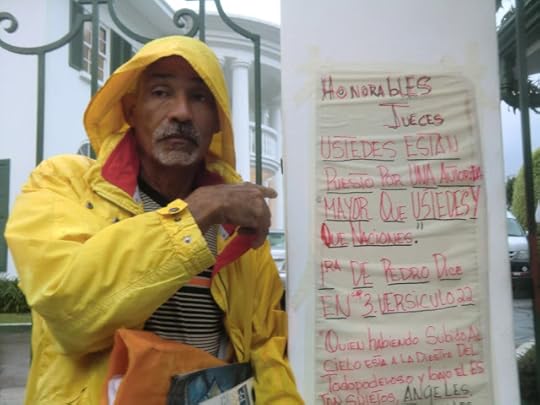 HONORABLES
JUECES
USTEDES ESTAN
PUESTO POR UNA AUTORIDA
MAYOR QUE USTEDES Y
QUE NACIONES."
1RA DE PEDRO DICE
EN 3. VERSICULO 22
"QUIEN HABIENDO SUBIDO AL
CIELO ESTA A LA DIESTRA DEL
TODOPODEROSO Y
SUJETOS, ANGELES,